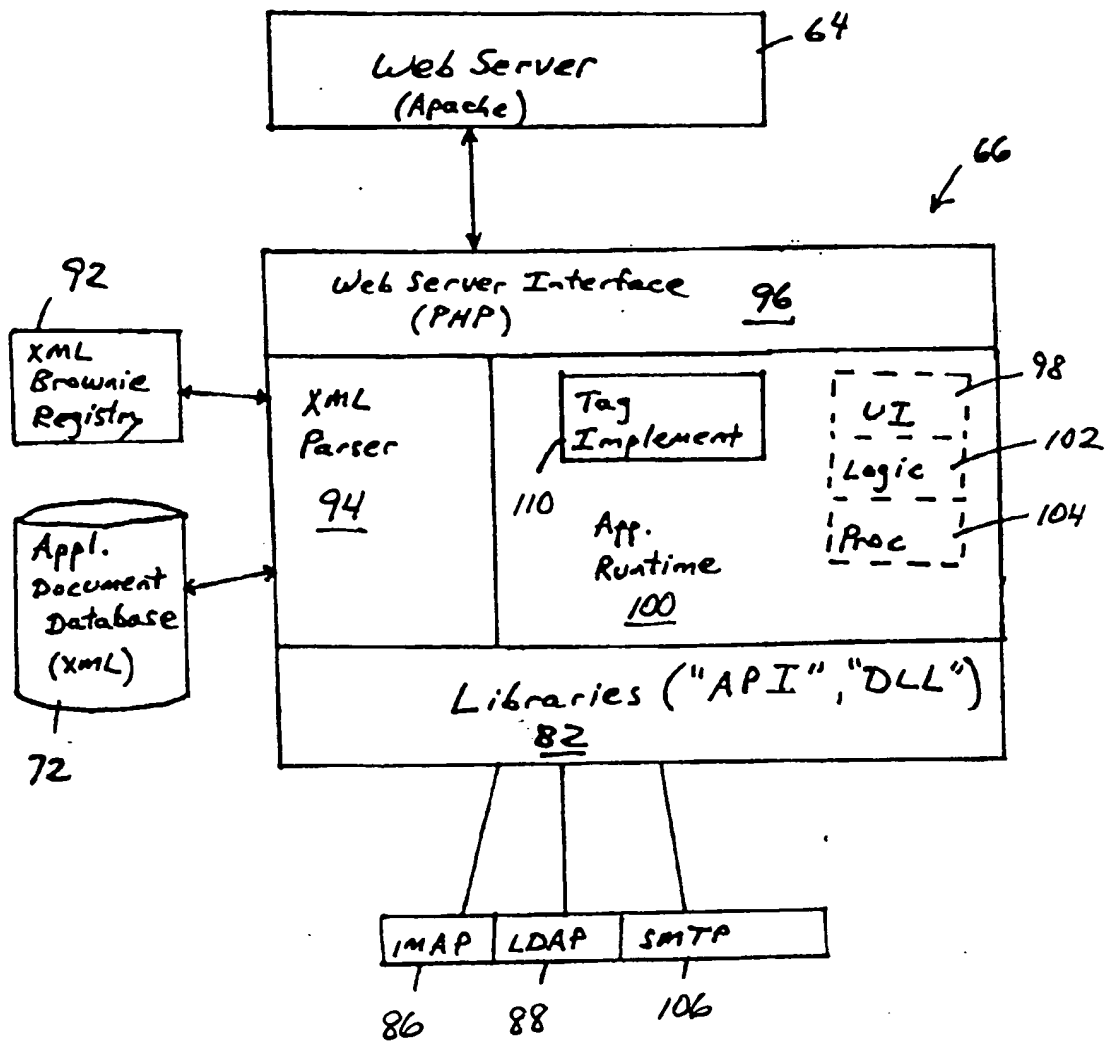 Web Server
(Apache)
64
66
Web Server Interface
(PHP)
96
92
XML
Brownie
Registry
XML
Parser
94
Tag
Implement
110
App.
Runtime
100
UI
98
Logic
102
Proc
104
Appl.
Document
Database
(XML)
72
Libraries ("API", "DLL")
82
IMAP
LDAP
SMTP
86
88
106